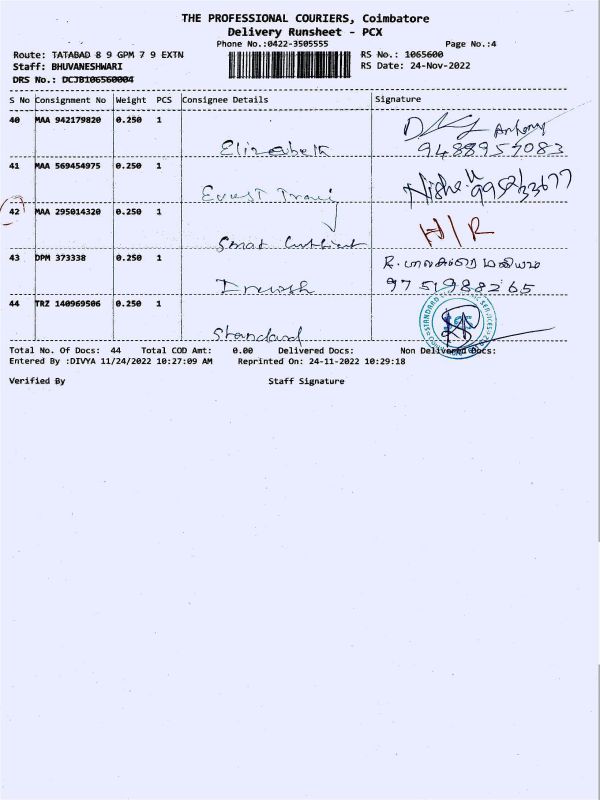 THE PROFESSIONAL COURIERS, Coimbatore
Delivery Runsheet - PCX
Phone No.:0422-3505555
Page No.:4
Route: TATABAD 8 9 GPM 7 9 EXTN
RS No.: 1065600
Staff: BHUVANESHWARI
RS Date: 24-Nov-2022
DRS No.: DCJB106560004
S No Consignment No Weight PCS Consignee Details Signature
40 MAA 942179820 0.250 1
Elizabeth
Antony
9488957083
41 MAA 569454975 0.250 1
Nisha.U 9952233677
42 MAA 295014320 0.250 1
Smat
H/R
43 DPM 373338 0.250 1
R. பாலசுப்ரமணியம்
9751988265
44 TRZ 140969506 0.250 1
Standard
STANDARD
Total No. Of Docs: 44 Total COD Amt: 0.00 Delivered Docs: Non Delivered Docs:
Entered By :DIVYA 11/24/2022 10:27:09 AM Reprinted On: 24-11-2022 10:29:18
Verified By Staff Signature